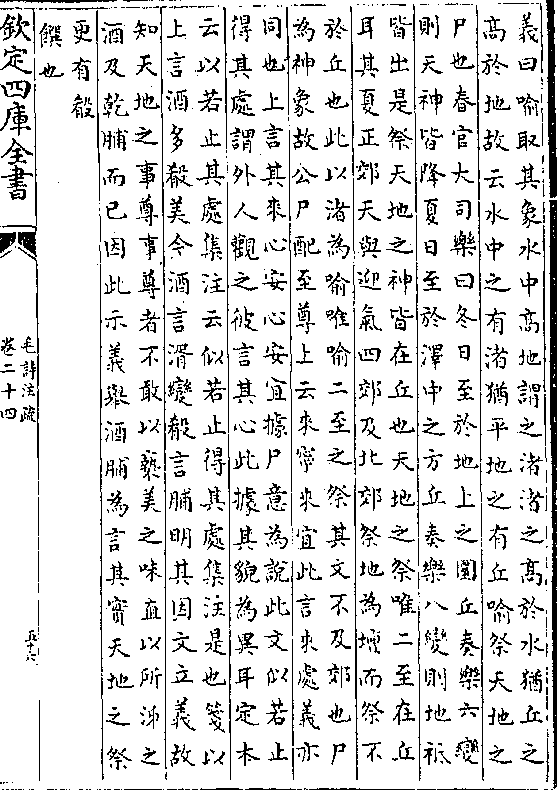 義曰喻取其象水中高地謂之渚渚之高於水猶丘之
高於地故云水中之有渚猶平地之有丘喻祭天地之
尸也春官大司樂曰冬日至於地上之圜丘奏樂六變
則天神皆降夏日至於澤中之方丘奏樂八變則地祇
皆出是祭天地之神皆在丘也天地之祭唯二至在丘
耳其夏正郊天與迎氣四郊及北郊祭地為壇而祭不
於丘也此以渚為喻唯喻二至之祭其文不及郊也尸
為神象故公尸配至尊上云來寧來宜此言來處義亦
同也上言其來心安心安宜據尸意為說此文似若止
得其處謂外人觀之彼言其心此據其貌為異耳定本
云以若止其處集注云似若止得其處集注是也箋以
上言酒多殽美今酒言湑變殽言脯明其因文立義故
知天地之事尊事尊者不敢以褻美之味直以所泲之
酒及乾脯而已因此示義舉酒脯為言其實天地之祭
更有殽
饌也
欽定四庫全書
毛詩注疏
卷二十四
五十六